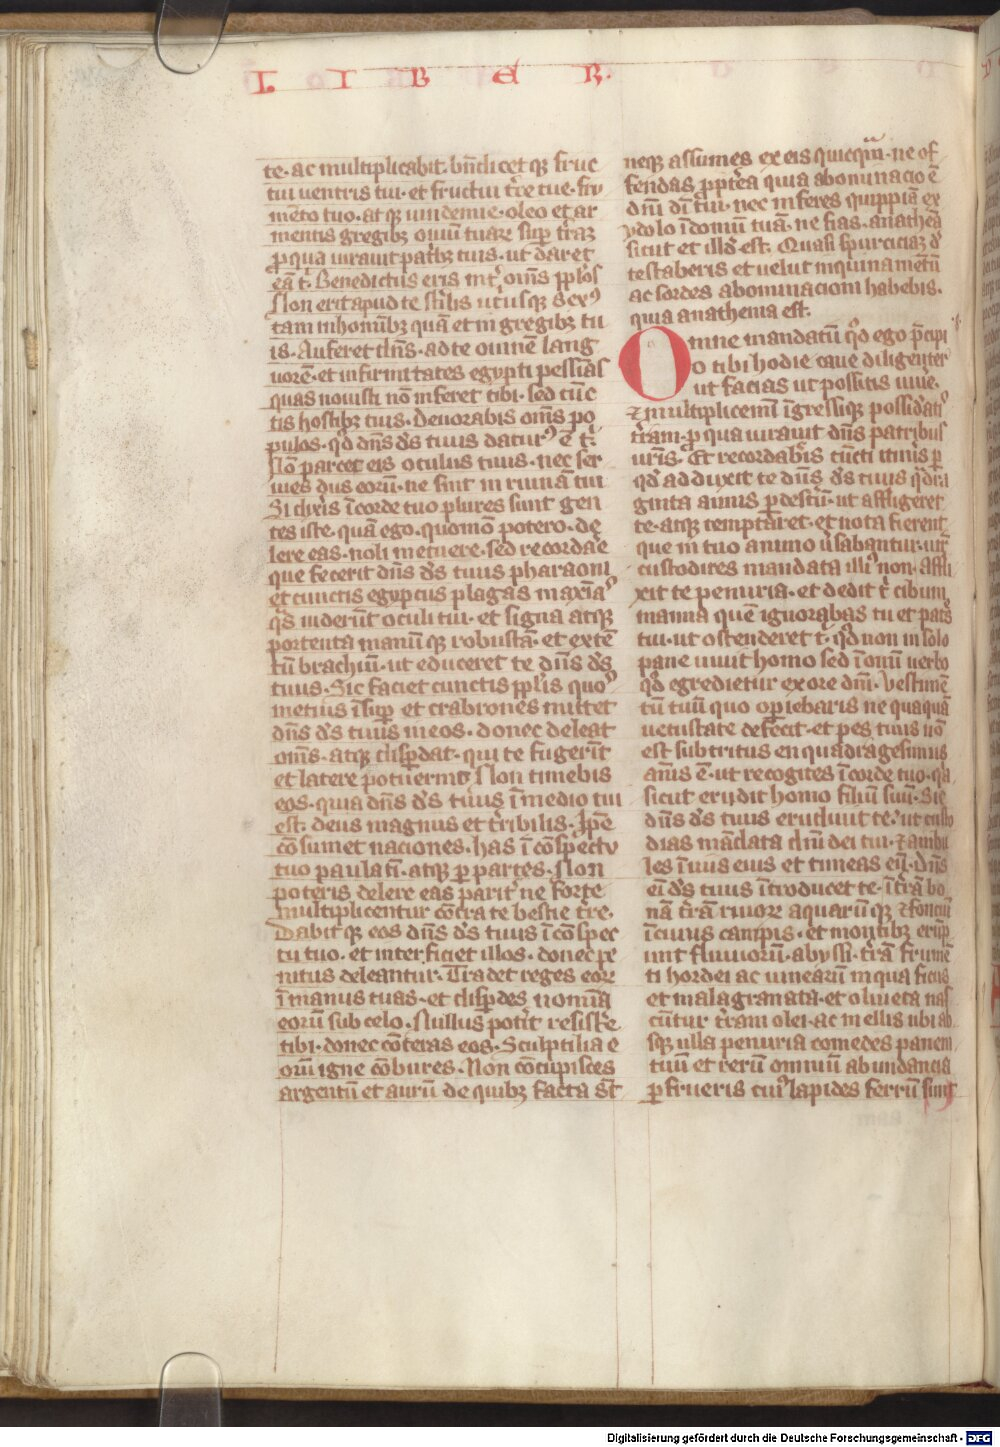 L I B E R.
te. ac multiplicabit. bn̄dicet qꝫ fruc
tui uentris tui. et fructui tr̄e tue. fru
mēto tuo. atqꝫ uindemie. oleo et ar
mentis gregibꝫ ouiū tuaꝝ sup̄ tr̄aꝫ
ꝓ qua iurauit patribꝫ tuis. ut daret
eā t͛. Benedictus eris int͛ om̄s pp̄los
Non erit apud te st̄lis utusqꝫ sexꝰ
tam in hominibꝫ quā et in gregibꝫ tu
is. Auferet dn̄s. ad te omnem lang
uorē. et infirmitates egypti pessīas
quas nouisti nō inferet tibi. sed cūc
tis hostibꝫ tuis. Deuorabis om̄s po
pulos. qd̓ dn̄s dꝰs tuus daturꝰ ē t͛.
Nō parcet eis oculus tuus. nec ser
uies dijs eorū. ne sint in ruinā tui
Si dix̄is ī corde tuo plures sunt gen
tes iste. quā ego. quomō potero. de
lere eas. noli metuere. sed recordare
que fecerit dn̄s dꝰs tuus pharaoni
et cunctis egyptijs plagas maxīas
qͣs uiderūt oculi tui. et signa atqꝫ
portenta manūqꝫ robustā. et extē
tū brachiū. ut educeret te dn̄s dꝰs
tuus. Sic faciet cunctis pp̄lis quoſ
metuis īsup̄ et crabrones mittet
dn̄s dꝰs tuus in eos. donec deleat
om̄s. atqꝫ disꝑdat. qui te fugerūt
et latere potuerint Non timebis
eos. quia dn̄s dꝰs tuus ī medio tui
est. deus magnus et tr̄ibilis. Ip̄e
cōsumet naciones. has ī cōspectu
tuo paulatī. atqꝫ ꝑ partes. Non
poteris delere eas parit͛ ne forte
multiplicentur cōtra te bestie tr̄e.
Dabit qꝫ eos dn̄s dꝰs tuus ī cōspec
tu tuo. et interficiet illos. donec pe
nitus deleantur. Tradet reges eoꝝ
ī manus tuas. et disꝑdes nomīa
eorū sub celo. Nullus potīt resist̄e
tibi. donec cōteras eos. Sculptilia e
orū igne cōbures. Non cōcupisces
argentū et aurū de quibꝫ facta sūt
neqꝫ assumes ex eis quicqͣm. ne of
fendas ꝓpt̄ea quia abominacio ē
dn̄i dī tui. nec inferes quippiā ex
ydolo ī domū tuā. ne fias. anathēa
sicut et illd̓ est. Quasi spurciciaꝫ d̓
testaberis et uelut inquinamētū
ac sordes abominacioni habebis.
quia anathema est.
Omne mandatū qd̓ ego p̄cipi
o tibi hodie caue diligenter
ut facias ut possitis uiue.
⁊ multiplicemī īgressiqꝫ possideatꝰ
tr̄am. ꝓ qua iurauit dn̄s patribus
ur̄is. Et recordab̄is cūcti itin̄is ꝑ
qd̓ adduxit te dn̄s dꝰs tuus qͣdra
ginta annis ꝑ destū. ut affligeret
te. atqꝫ temptaret. et nota fierent
que in tuo animo ūsabantur. utꝝ
custodires mandata illiꝰ non. affli
xit te penuria. et dedit t͛ cibum
manna quē ignorabas tu et patꝭ
tui. ut ostenderet t͛. qd̓ non in solo
pane uiuit homo sed ī omī uerbo
qd̓ egredietur ex ore dn̄i. Vestimē
tū tuū quo opiebaris ne quaquā
uetustate defecit. et pes tuus nō
est subtritus en quadragesimus
annꝰ ē. ut recogites ī corde tuo. qͣa
sicut erudit homo filiū suū. Sic
dn̄s dꝰs tuus erudiuit te. ut custo
dias mādata dn̄i dei tui. ⁊ ambu
les ī uijs eius et timeas eū. dn̄s
eī dꝰs tuus ītroducet te. ī tr̄ā bo
nā tr̄ā riuoꝝ aquarūqꝫ ⁊ fonciū
ī cuius campis. et montibꝫ erūp
unt fluuiorū. abyssi. tr̄ā frumē
ti hordei ac uinearū in qua ficus
et malagranata. et oliueta nas
cūtur tr̄am olei. ac mellis ubi ab
sqꝫ ulla penuria comedes panem
tuū et rerū omniū abundancia
ꝑfrueris cuiꝰ lapides ferrū sunt
Digitalisierung gefördert durch die Deutsche Forschungsgemeinschaft - DFG